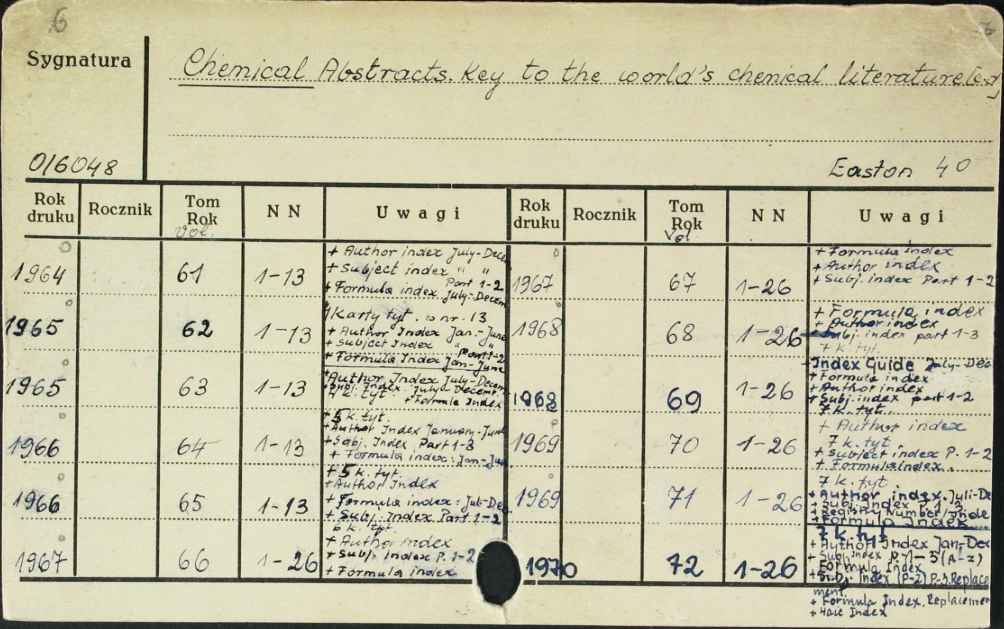 6
Sygnatura
Chemical Abstracts. Key to the world's chemical literature
016048
Easton 40
Rok druku Rocznik Tom Rok NN Uwagi Rok druku Rocznik Tom Rok NN Uwagi
Vol. Vol
1964 61 1-13
+ Author index July-Dec
+ Subject index " "
Part 1-2
+ Formula index. July-Decem
1965 62 1-13
Karty tyt. o nr. 13
+ Author Index Jan.-June
+ Subject Index "
Part 1-2
+ Formula Index Jan-June
1965 63 1-13
+Author Index July-Decem
+Subj. Index July-Decem
4 k. tyt. + Formula Index
1966 64 1-13
+ 5 k. tyt.
+Author Index January-June
+Subj. Index Part 1-3
+ Formula index: Jan-Jun
1966 65 1-13
+ 5 k. tyt.
+Author Index
+ Formula index: Jul-Dec
+ Subj. Index Part 1-2
1967 66 1-26
6 k. tyt.
+ Author index
+ Subj. index P. 1-2
+ Formula index
1967 67 1-26
+ Formula index
+ Author index
+ Subj. index Part 1-2
1968 68 1-26
+ Formula index
+ Author index
+ Subj. index part 1-3
7 k. tyt.
1968 69 1-26
Index Guide July-Dec
+ Formula index
+ Author index
+ Subj. index part 1-2
7 k. tyt.
1969 70 1-26
+ Author index
7 k. tyt.
+ Subject index P. 1-2
+ Formula Index.
1969 71 1-26
7 k. tyt.
+ Author index. Juli-De
+ Subj. Index P. 1-3
+ Registry Number/Inde
+ Formula Index
1970 72 1-26
7 k. tyt
+ Author Index Jan-Dec
+ Subj. Index P. 1-5 (A-Z)
+ Formula Index
+ Subj. Index (P-Z) P. 4 Replace
ment.
+ Formula Index. Replacemen
+ Hace Index